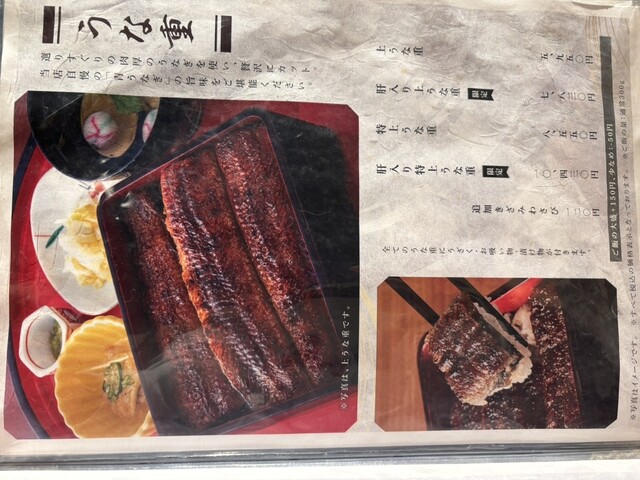 うな重
選りすぐりの肉厚のうなぎを使い、贅沢にカット。
当店自慢の「青うなぎ」の旨味をご堪能ください。
※写真は、上うな重です。
上うな重 五、九五〇円
肝入り上うな重 限定 七、八三〇円
特上うな重 八、五五〇円
肝入り特上うな重 限定 一〇、四三〇円
追加きざみわさび 一一〇円
全てのうな重にうざく、お吸い物、漬け物が付きます。
ご飯の大盛+150円、少なめ:-50円
※写真はイメージです。 ※すべて税込の価格表示となっております。 ※ご飯の量:通常300g